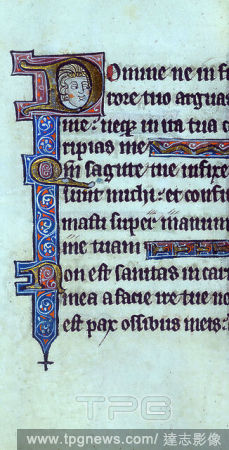 Domine ne in fu
rore tuo arguas
me: neqz in ira tua co
ripias me
Qm sagitte tue infixe
sunt michi: et confir
masti super me manum
me tuam
Non est sanitas in car
mea a facie ire tue no
est pax ossibus meis:
TPG
www.tpgnews.com / 達志影像